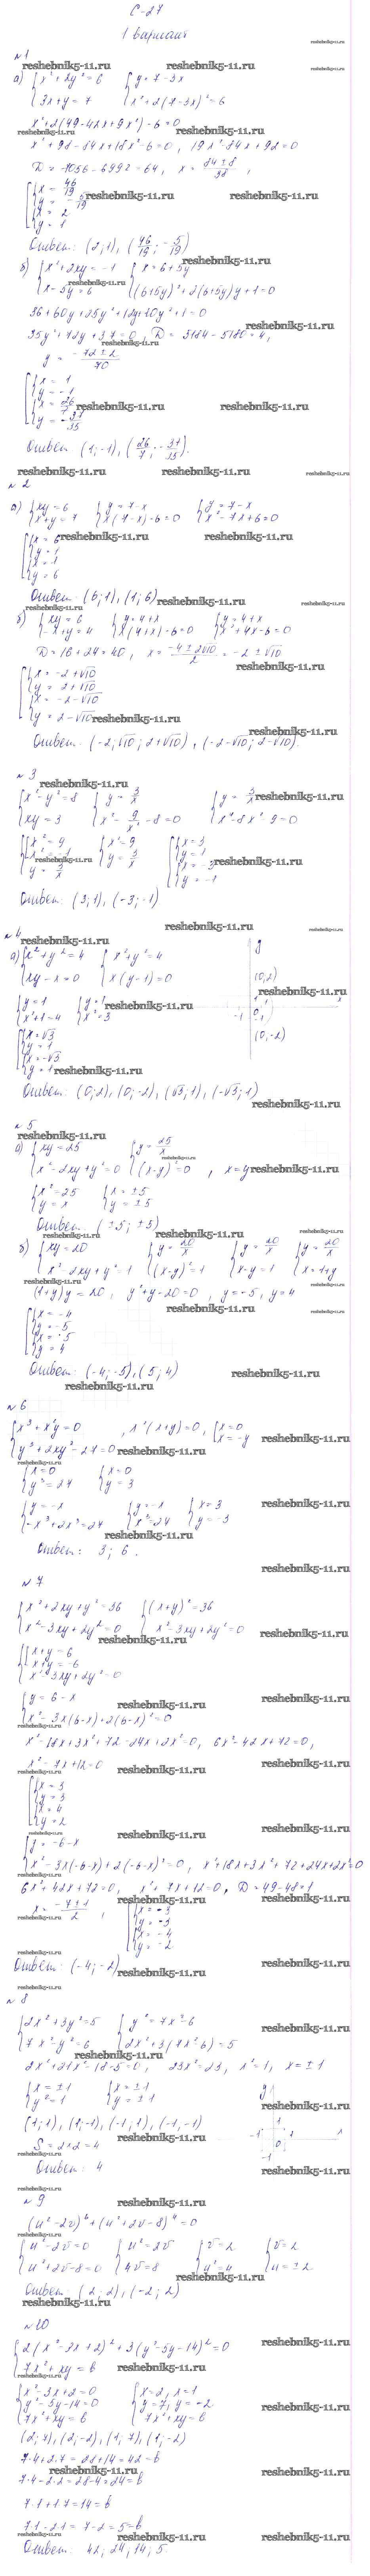 С-27
1 вариант
№1
а) { x²+2y²=6 { y=7-3x
3x+y=7 x²+2(7-3x)²=6
x²+2(49-42x+9x²)-6=0
x²+98-84x+18x²-6=0, 19x²-84x+92=0
D=7056-6992=64, x=(84±8)/38,
x=46/19
y=-5/19
x=2
y=1
Ответ: (2;1), (46/19; -5/19)
б) { x²+2xy=-1 { x=6+5y
x-5y=6 (6+5y)²+2(6+5y)y+1=0
36+60y+25y²+12y+10y²+1=0
35y²+72y+37=0, D=5184-5180=4,
y=(-72±2)/70
x=1
y=-1
x=26/7
y=-37/35
Ответ: (1;-1), (26/7; -37/35).
№2
а) { xy=6 { y=7-x { y=7-x
x+y=7 x(7-x)-6=0 x²-7x+6=0
x=6
y=1
x=1
y=6
Ответ: (6;1), (1;6)
б) { xy=6 { y=4+x { y=4+x
-x+y=4 x(4+x)-6=0 x²+4x-6=0
D=16+24=40, x=(-4±2√10)/2=-2±√10
x=-2+√10
y=2+√10
x=-2-√10
y=2-√10
Ответ: (-2;√10; 2+√10), (-2-√10; 2-√10).
№3
{ x²-y²=8 { y=3/x { y=3/x
xy=3 x²-9/x²-8=0 x⁴-8x²-9=0
x²=9 x²=9 x=3
x²=-1 y=3/x y=1
y=3/x x=-3
y=-1
Ответ: (3;1), (-3;-1)
№4
а) { x²+y²=4 { x²+y²=4
xy-x=0 x(y-1)=0
y=1 y=1
x²+1=4 x²=3
x=√3
y=1
x=-√3
y=1
y
(0,2)
x
(0,-2)
Ответ: (0;2), (0;-2), (√3;1), (-√3;1)
№5
а) { xy=25 { y=25/x
x²-2xy+y²=0 (x-y)²=0, x=y
x²=25 x=±5
y=x y=±5
Ответ: (±5; ±5)
б) { xy=20 { y=20/x { y=20/x { y=20/x
x²-2xy+y²=1 (x-y)²=1 x-y=1 x=1+y
(1+y)y=20, y²+y-20=0, y=-5, y=4
x=-4
y=-5
x=5
y=4
Ответ: (-4;-5), (5;4)
№6
{ x³+x²y=0, x²(x+y)=0, [ x=0
y³+2xy²-27=0 x=-y
x=0 x=0
y³=27 y=3
y=-x y=-x x=3
-x³+2x³=27 x³=27 y=-3
Ответ: 3; 6.
№7
{ x²+2xy+y²=36 { (x+y)²=36
x²-3xy+2y²=0 x²-3xy+2y²=0
x+y=6
x+y=-6
x²-3xy+2y²=0
y=6-x
x²-3x(6-x)+2(6-x)²=0
x²-18x+3x²+72-24x+2x²=0, 6x²-42x+72=0,
x²-7x+12=0
x=3
y=3
x=4
y=2
y=-6-x
x²-3x(-6-x)+2(-6-x)²=0, x²+18x+3x²+72+24x+2x²=0
6x²+42x+72=0, x²+7x+12=0, D=49-48=1
x=(-7±1)/2,
x=-3
y=-3
x=-4
y=-2
Ответ: (-4;-2)
№8
{ 2x²+3y²=5 { y²=7x²-6
7x²-y²=6 2x²+3(7x²-6)=5
2x²+21x²-18-5=0, 23x²=23, x²=1, x=±1
x=±1 x=±1
y²=1 y=±1
(1;1), (1;-1), (-1;1), (-1,-1)
S=2·2=4
Ответ: 4
№9
(u²-2v)⁶+(u²+2v-8)⁴=0
{ u²-2v=0 { u²=2v { v=2 { v=2
u²+2v-8=0 4v=8 u²=4 u=±2
Ответ: (2;2), (-2;2)
№10
{ 2(x²-3x+2)²+3(y²-5y-14)²=0
7x²+xy=b
x²-3x+2=0 x=2, x=1
y²-5y-14=0 y=7, y=-2
7x²+xy=b 7x²+xy=b
(2;7), (2;-2), (1;7), (1;-2)
7·4+2·7=28+14=42=b
7·4-2·2=28-4=24=b
7·1+1·7=14=b
7·1-2·1=7-2=5=b
Ответ: 42; 24; 14; 5.
reshebnik5-11.ru